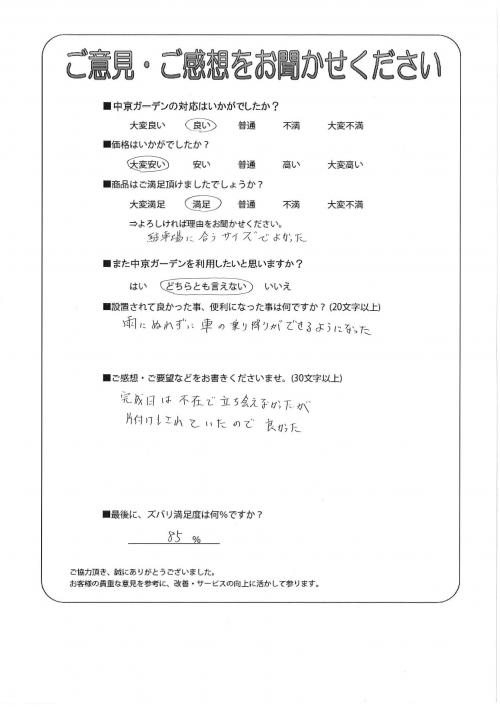 ご意見・ご感想をお聞かせください
■中京ガーデンの対応はいかがでしたか？
大変良い 良い 普通 不満 大変不満
■価格はいかがでしたか？
大変安い 安い 普通 高い 大変高い
■商品はご満足頂けましたでしょうか？
大変満足 満足 普通 不満 大変不満
⇒よろしければ理由をお聞かせください。
駐車場に合うサイズでよかった
■また中京ガーデンを利用したいと思いますか？
はい どちらとも言えない いいえ
■設置されて良かった事、便利になった事は何ですか？(20文字以上)
雨にぬれずに車の乗り降りができるようになった
■ご感想・ご要望などをお書きくださいませ。(30文字以上)
完成日は不在で立ち会えなかったが
片付けもされていたので良かった
■最後に、ズバリ満足度は何％ですか？
85 ％
ご協力頂き、誠にありがとうございました。
お客様の貴重な意見を参考に、改善・サービスの向上に活かして参ります。